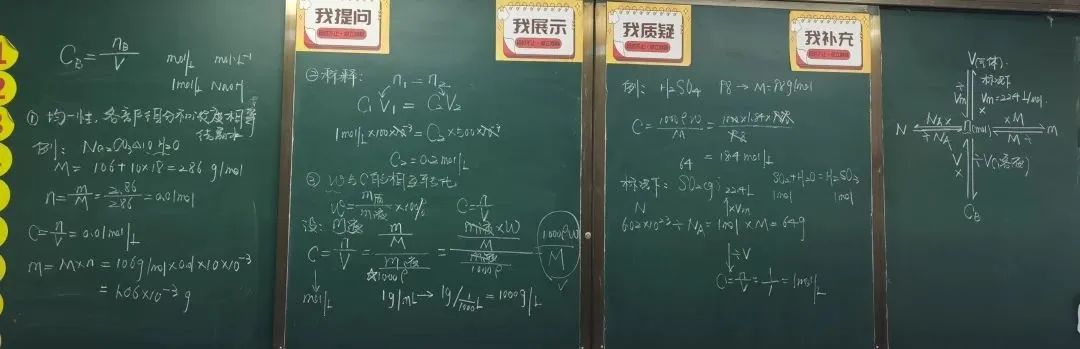 我提问
我展示
我质疑
我补充
C_B = n_B/V mol/L mol·L⁻¹
1mol/L NaOH
① 均一性,各部分
例: Na₂CO₃·10H₂O
M = 106+10×18=286 g/mol
n = m/M = 2.86/286 = 0.01mol
C = n/V = 0.01mol/L
m = M×n = 106g/mol×0.01×10×10⁻³
= 1.06×10⁻² g
② 稀释: n₁ = n₂
C₁V₁ = C₂V₂
1mol/L×100×10⁻³ = C₂×500×10⁻³
C₂ = 0.2mol/L
③ W与C的相互转化
W = m质/m液 ×100% C = n/V
设: m液
C = n/V = (m/M)/(m液/1000ρ) = (m液×W/M)/(m液/1000ρ) = 1000ρW/M
mol/L 1g/mL → 1g/(1/1000 L) = 1000g/L
例: H₂SO₄ 98 → M=98g/mol
C = 1000ρW/M
= 18.4mol/L
64
标况下: SO₂(g) 22.4L SO₂+H₂O=H₂SO₃
1mol 1mol
N ↑×Vm
6.02×10²³ ÷ N_A = 1mol × M = 64g
↓÷V
C = n/V = 1/1 = 1mol/L
V(气体)
标况下
Vm=22.4L/mol
÷Vm
N N_A× ÷N_A n(mol) ×M M÷ m
V× ÷V(溶液)
C_B